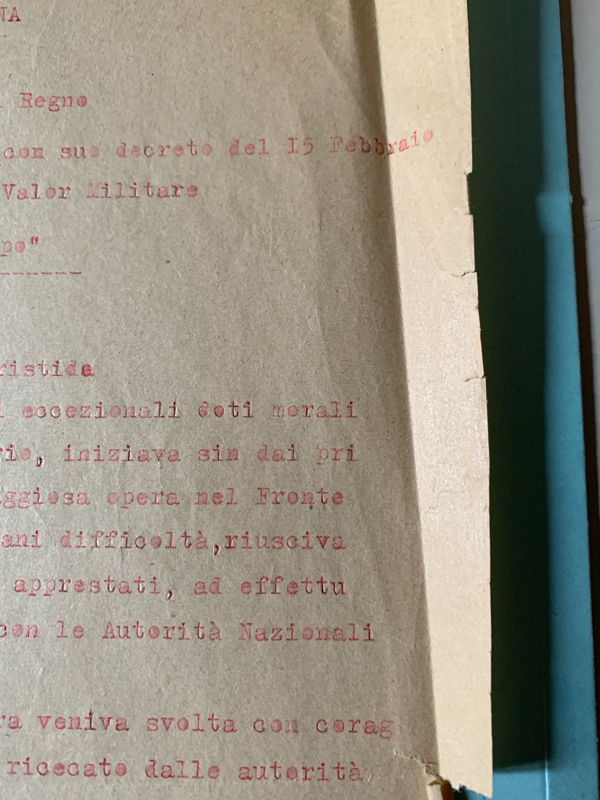 NA
Regno
con suo decreto del I5 Febbraio
Valor Militare
po"
-------
ristida
eccezionali doti morali
rio, iniziava sin dai pri
aggiosa opera nel Fronte
ani difficoltà,riusciva
apprestati, ad effettu
con le Autorità Nazionali
ra veniva svolta con corag
ricecato dalle autorità